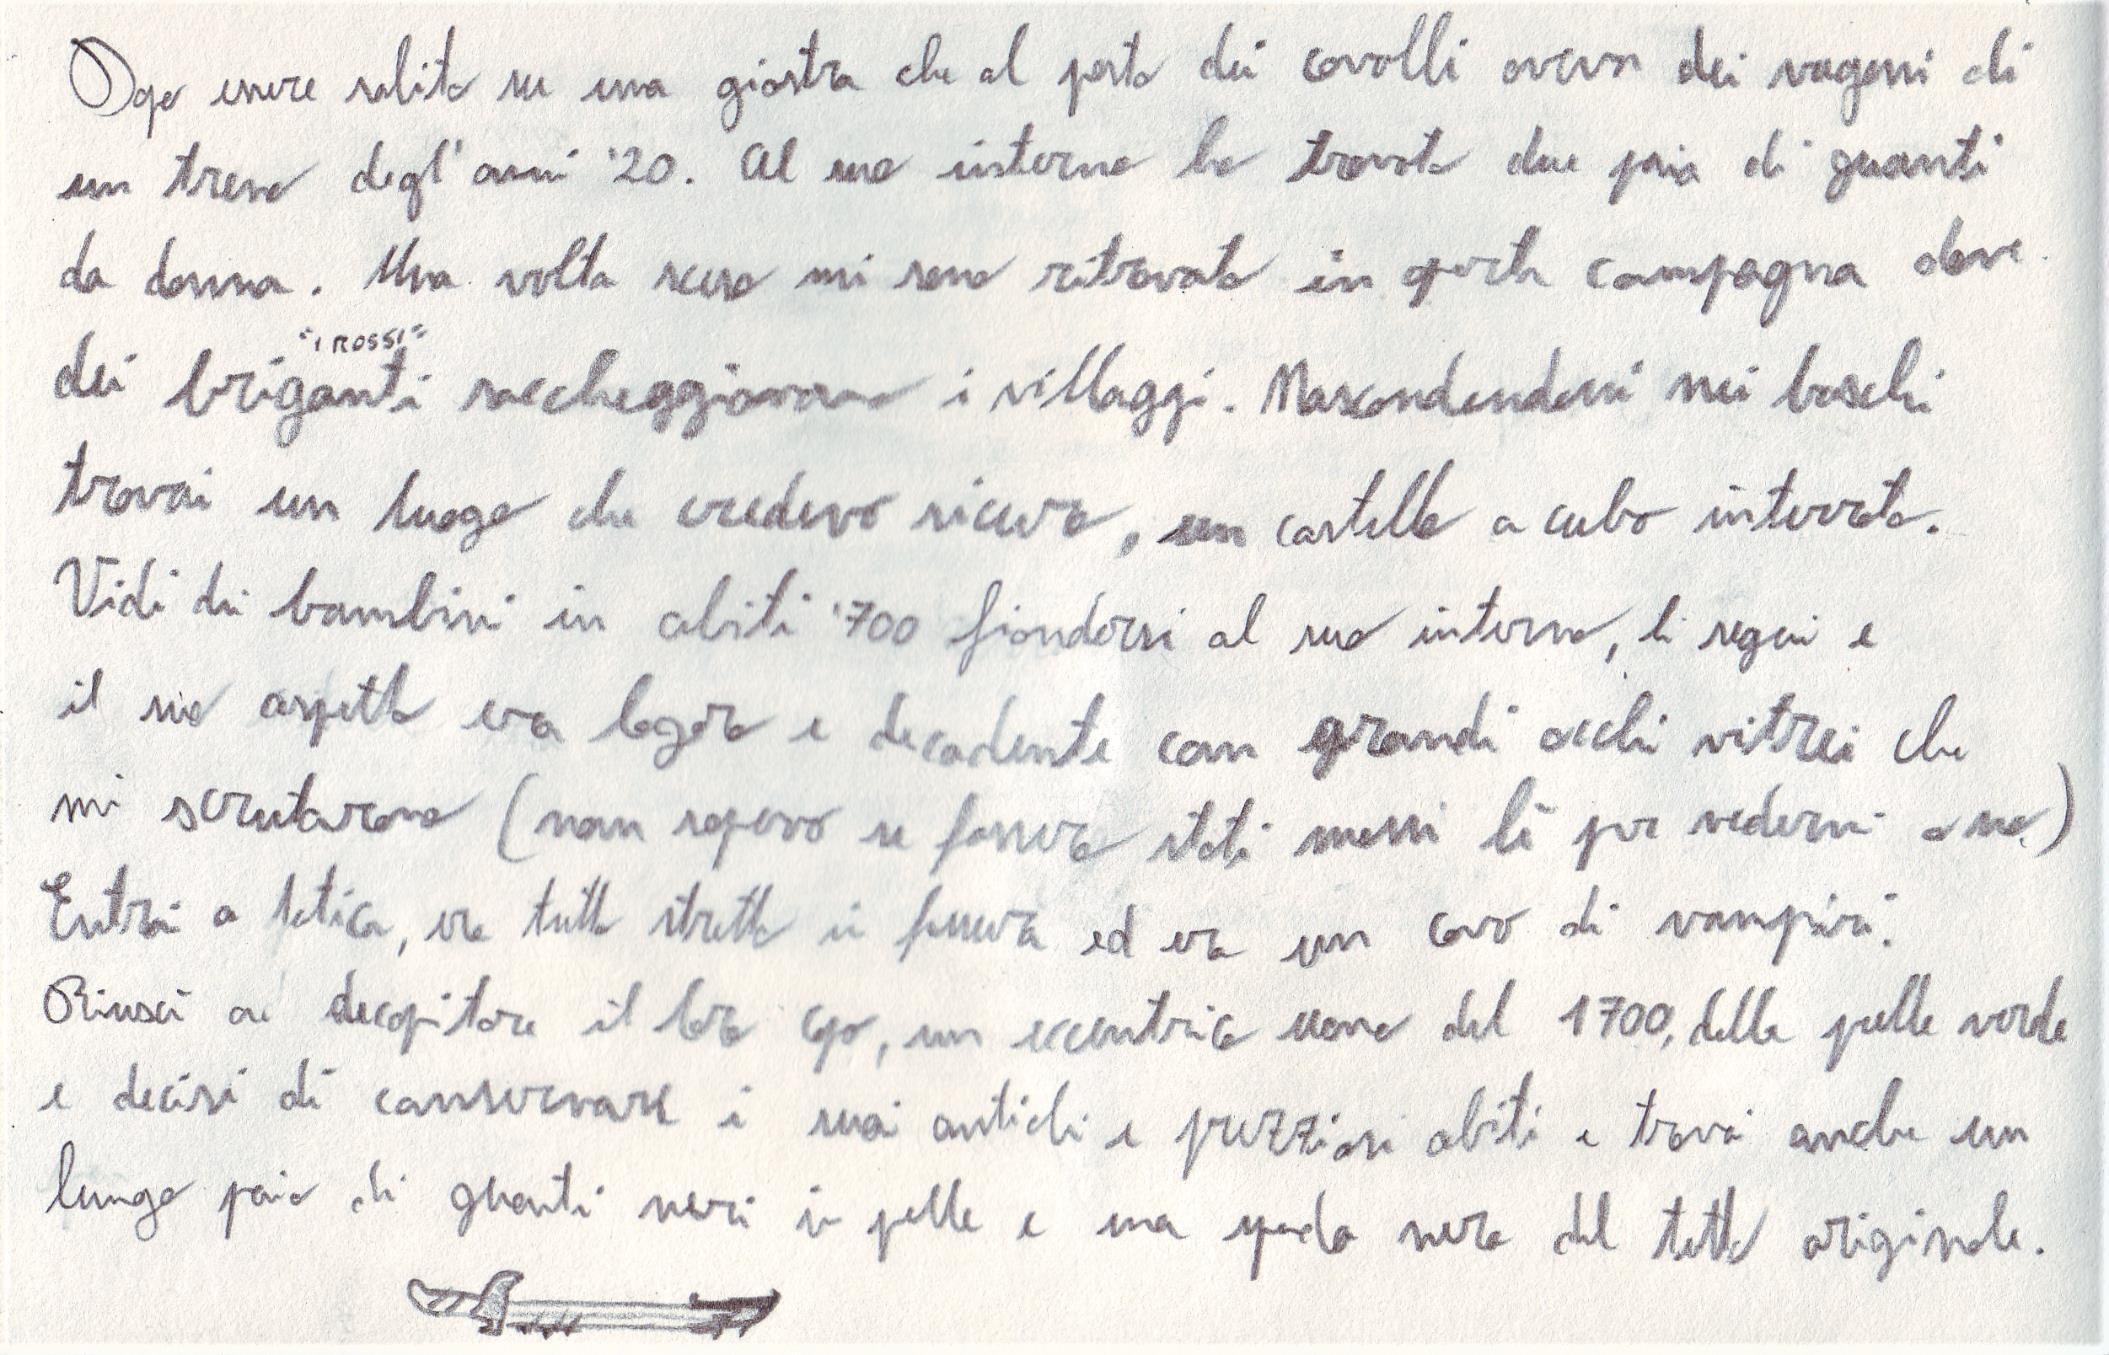 Dopo essere salito su una giostra che al posto dei cavalli aveva dei vagoni di
un treno degl'anni '20. Al suo interno ho trovato due paia di guanti
da donna. Una volta sceso mi sono ritrovato in aperta campagna dove
"I ROSSI"
dei briganti saccheggiavano i villaggi. Nascondendomi nei boschi
trovai un luogo che credevo sicuro, un castello a cubo interrato.
Vidi dei bambini in abiti '700 fiondarsi al suo interno, li seguii e
il suo aspetto era logoro e decadente con grandi occhi vitrei che
mi scrutarono (non sapevo se fossero stati messi lì per vedermi o no)
Entrai a fatica, era tutto stretto in fessura ed era un covo di vampiri.
Riuscì a decapitare il loro capo, un eccentrico uomo del 1700, dalla pelle verde
e decisi di conservare i suoi antichi e prezziosi abiti e trovai anche un
lungo paio di guanti neri in pelle e una spada nera del tutto originale.